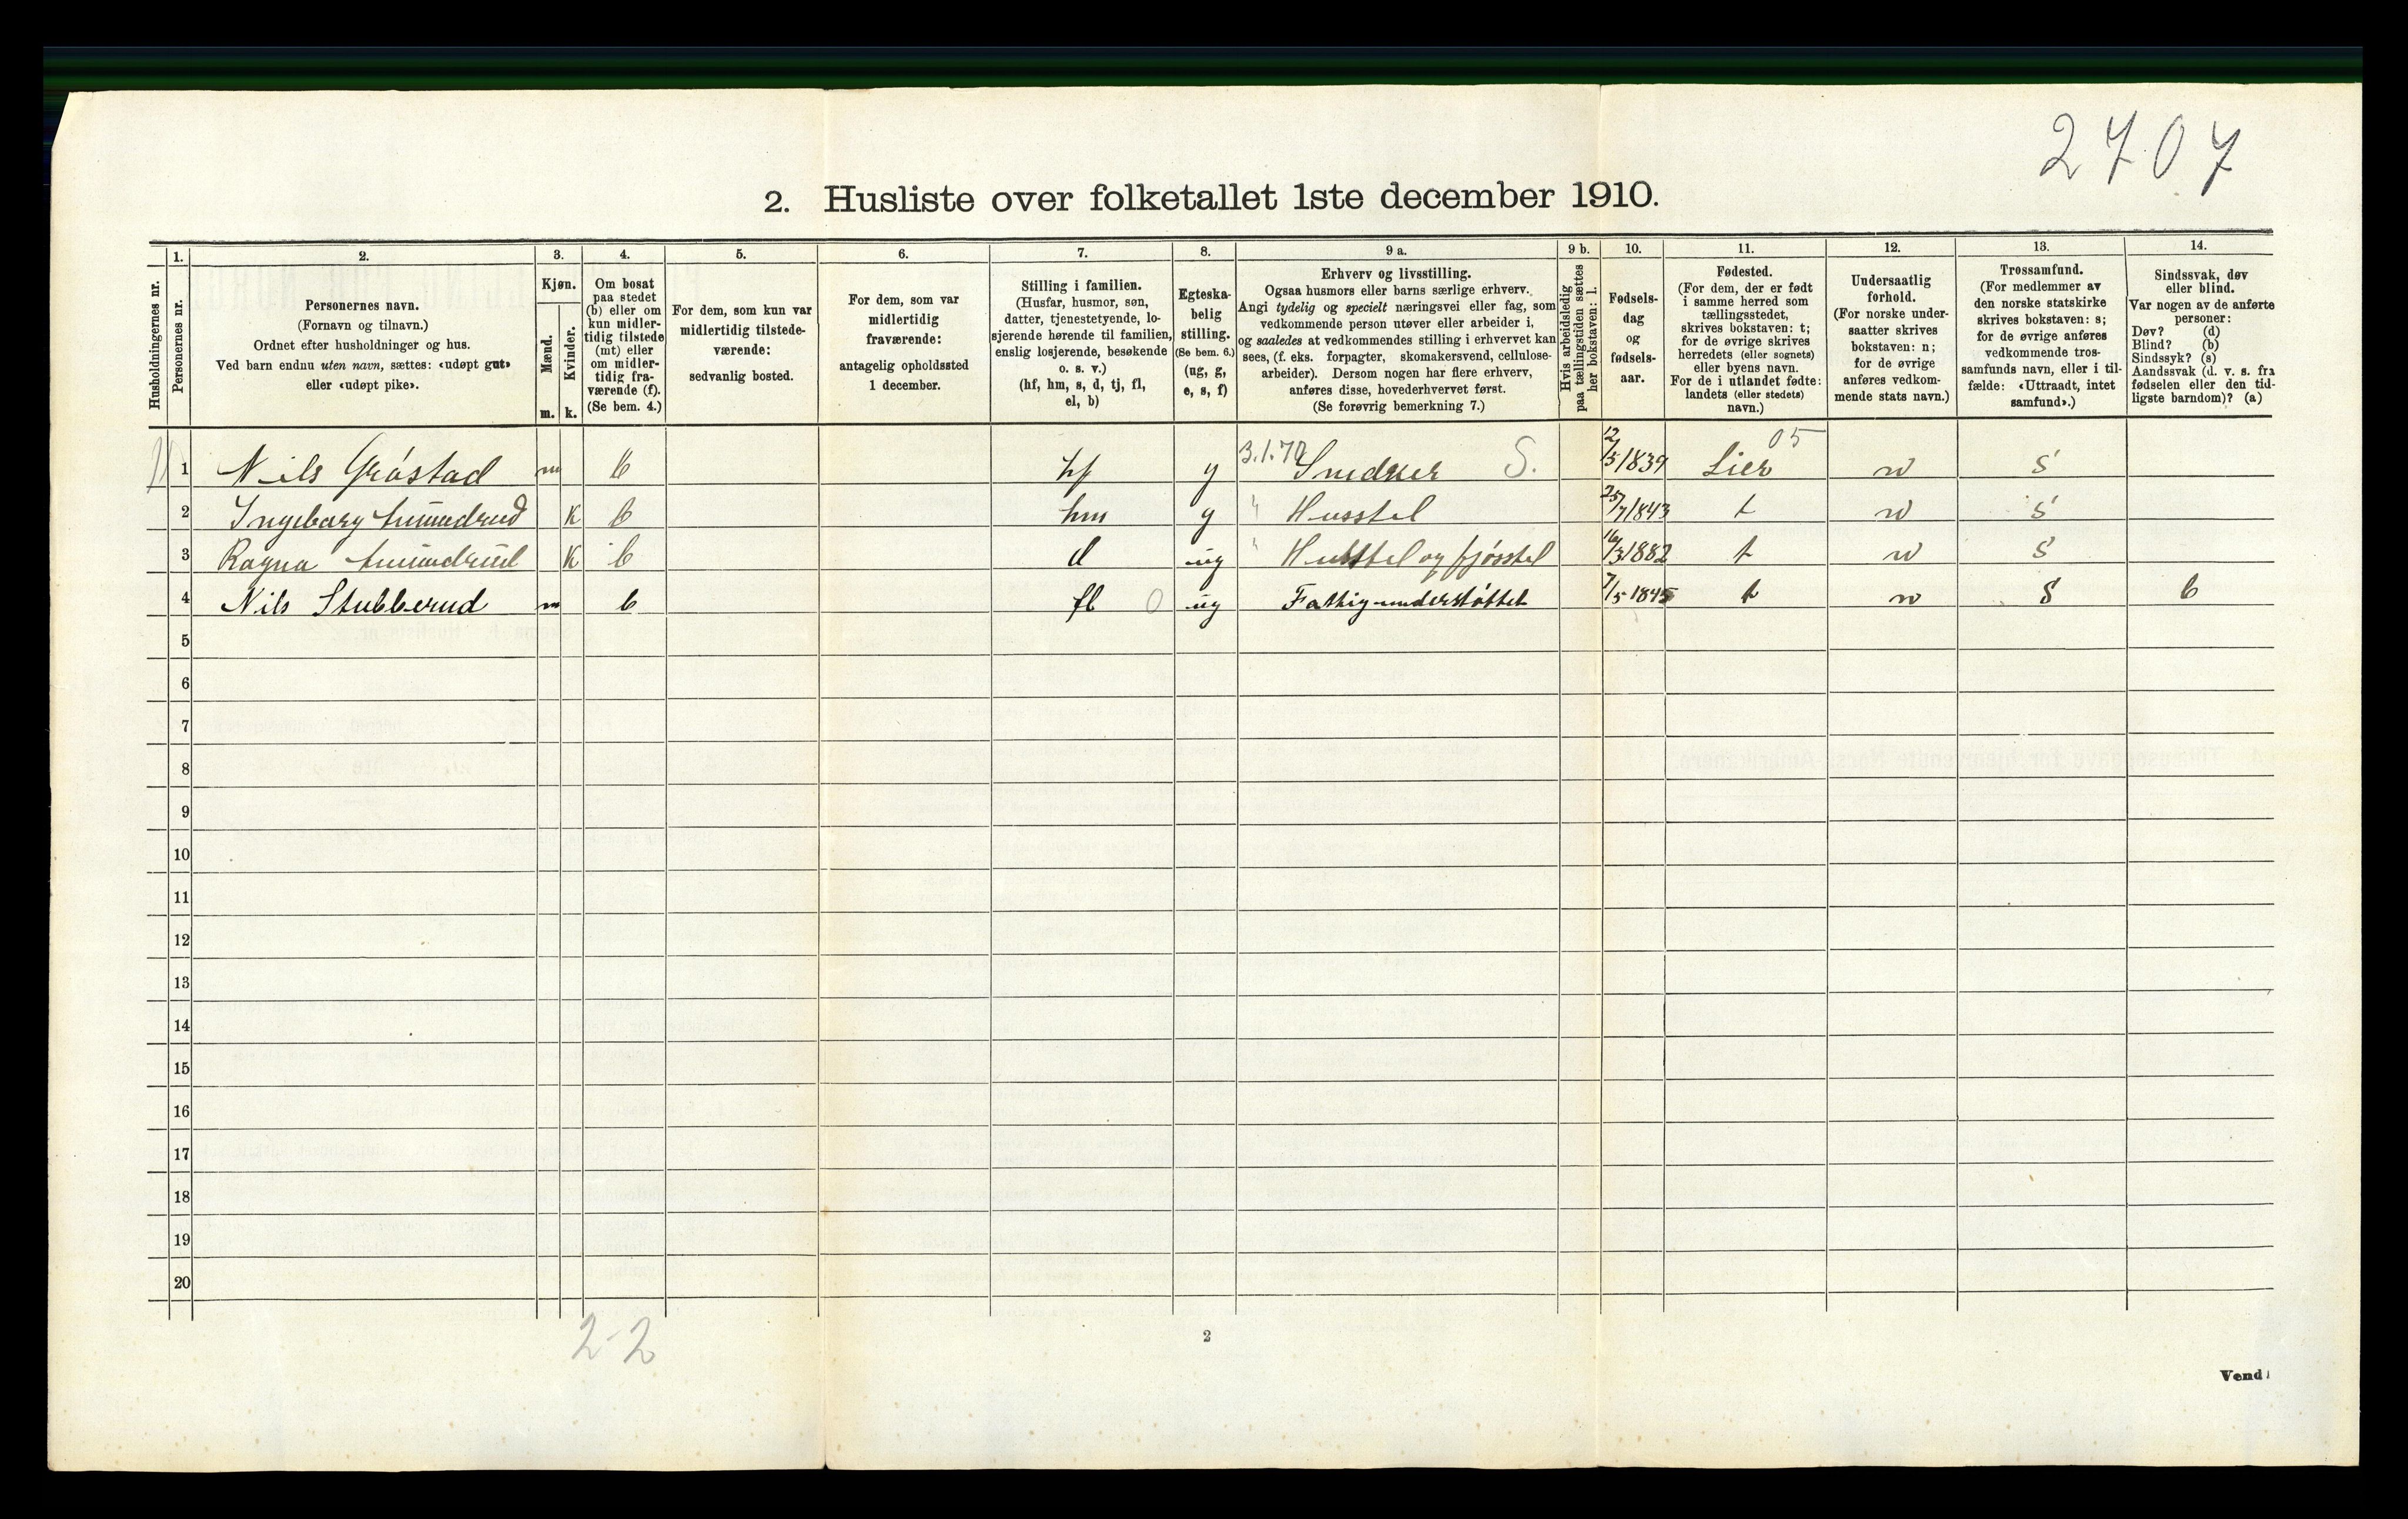 2707
2. Husliste over folketallet 1ste december 1910.
Husholdningernes nr.
1.
Personernes nr.
2.
Personernes navn.
(Fornavn og tilnavn.)
Ordnet efter husholdninger og hus.
Ved barn endnu uten navn, sættes: «udøpt gut»
eller «udøpt pike».
3.
Kjøn.
Mænd.
m.
Kvinder.
k.
4.
Om bosat
paa stedet
(b) eller om
kun midler-
tidig tilstede
(mt) eller
om midler-
tidig fra-
værende (f).
(Se bem. 4.)
5.
For dem, som kun var
midlertidig tilstede-
værende:
sedvanlig bosted.
6.
For dem, som var
midlertidig
fraværende:
antagelig opholdssted
1 december.
7.
Stilling i familien.
(Husfar, husmor, søn,
datter, tjenestetyende, lo-
sjerende hørende til familien,
enslig losjerende, besøkende
o. s. v.)
(hf, hm, s, d, tj, fl,
el, b)
8.
Egteska-
belig
stilling.
(Se bem. 6.)
(ug, g,
e, s, f)
9 a.
Erhverv og livsstilling.
Ogsaa husmors eller barns særlige erhverv.
Angi tydelig og specielt næringsvei eller fag, som
vedkommende person utøver eller arbeider i,
og saaledes at vedkommendes stilling i erhvervet kan
sees, (f. eks. forpagter, skomakersvend, cellulose-
arbeider). Dersom nogen har flere erhverv,
anføres disse, hovederhvervet først.
(Se forøvrig bemerkning 7.)
9 b.
Hvis arbeidsledig
paa tællingstiden sættes
her bokstaven: l.
10.
Fødsels-
dag
og
fødsels-
aar.
11.
Fødested.
(For dem, der er født
i samme herred som
tællingsstedet,
skrives bokstaven: t;
for de øvrige skrives
herredets (eller sognets)
eller byens navn.
For de i utlandet fødte:
landets (eller stedets)
navn.)
12.
Undersaatlig
forhold.
(For norske under-
saatter skrives
bokstaven: n;
for de øvrige
anføres vedkom-
mende stats navn.)
13.
Trossamfund.
(For medlemmer av
den norske statskirke
skrives bokstaven: s;
for de øvrige anføres
vedkommende tros-
samfunds navn, eller i til-
fælde: «Uttraadt, intet
samfund».)
14.
Sindssvak, døv
eller blind.
Var nogen av de anførte
personer:
Døv? (d)
Blind? (b)
Sindssyk? (s)
Aandssvak (d. v. s. fra
fødselen eller den tid-
ligste barndom)? (a)
1 Nils Gröstad m b hf g 3.1.70 Snedker S. 12/5 1839 Lier 05 n S
2 Ingeborg Amundrud k b hm g " Husstel 25/7 1843 t n S
3 Ragna Amundrud k b d ug " Husstel og fjösstel 16/3 1882 t n S
4 Nils Stubberud m b fl 0 ug Fattigunderstöttet 7/5 1845 t n S b
5
6
7
8
9
10
11
12
13
14
15
16
17
18
19
20
2-2
2
Vend!